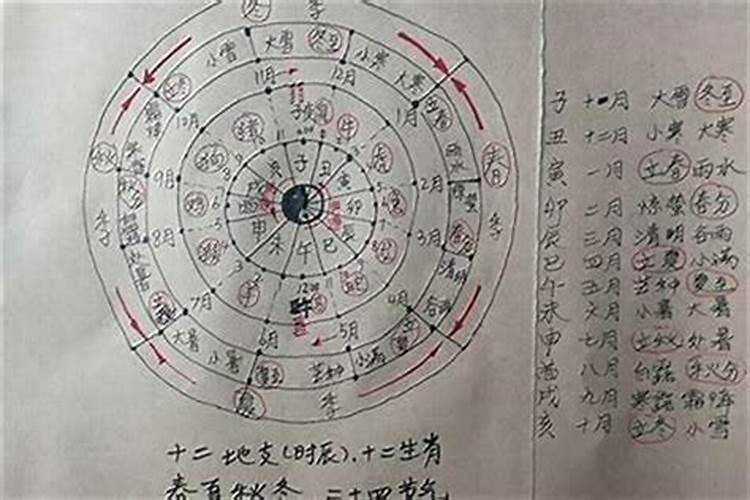 冬 季
小雪 大雪 冬至 小寒 大寒
立冬 11月 12月 立春
10月 子 1月 雨水
秋 猪 鼠 牛 虎 春
狗 亥 子 丑 寅
9月 戌 卯 2月 惊蛰
秋分 鸡 酉 辰 兔 春分
季 8月 申 未 午 巳 3月 清明 季
猴 羊 谷雨
立秋 7月 4月 立夏
大暑 6月 5月 小满
小暑 夏至 芒种
夏 季
子 十一月 大雪 冬至
丑 十二月 小寒 大寒
寅 一月 立春 雨水
卯 二月 惊蛰 春分
辰 三月 清明 谷雨
巳 四月 立夏 小满
午 五月 芒种 夏至
未 六月 小暑 大暑
申 七月 立秋 处暑
酉 八月 白露 秋分
戌 九月 寒露 霜降
亥 十月 立冬 小雪
十二地支(时辰)、十二生肖
春夏秋冬 二十四节气